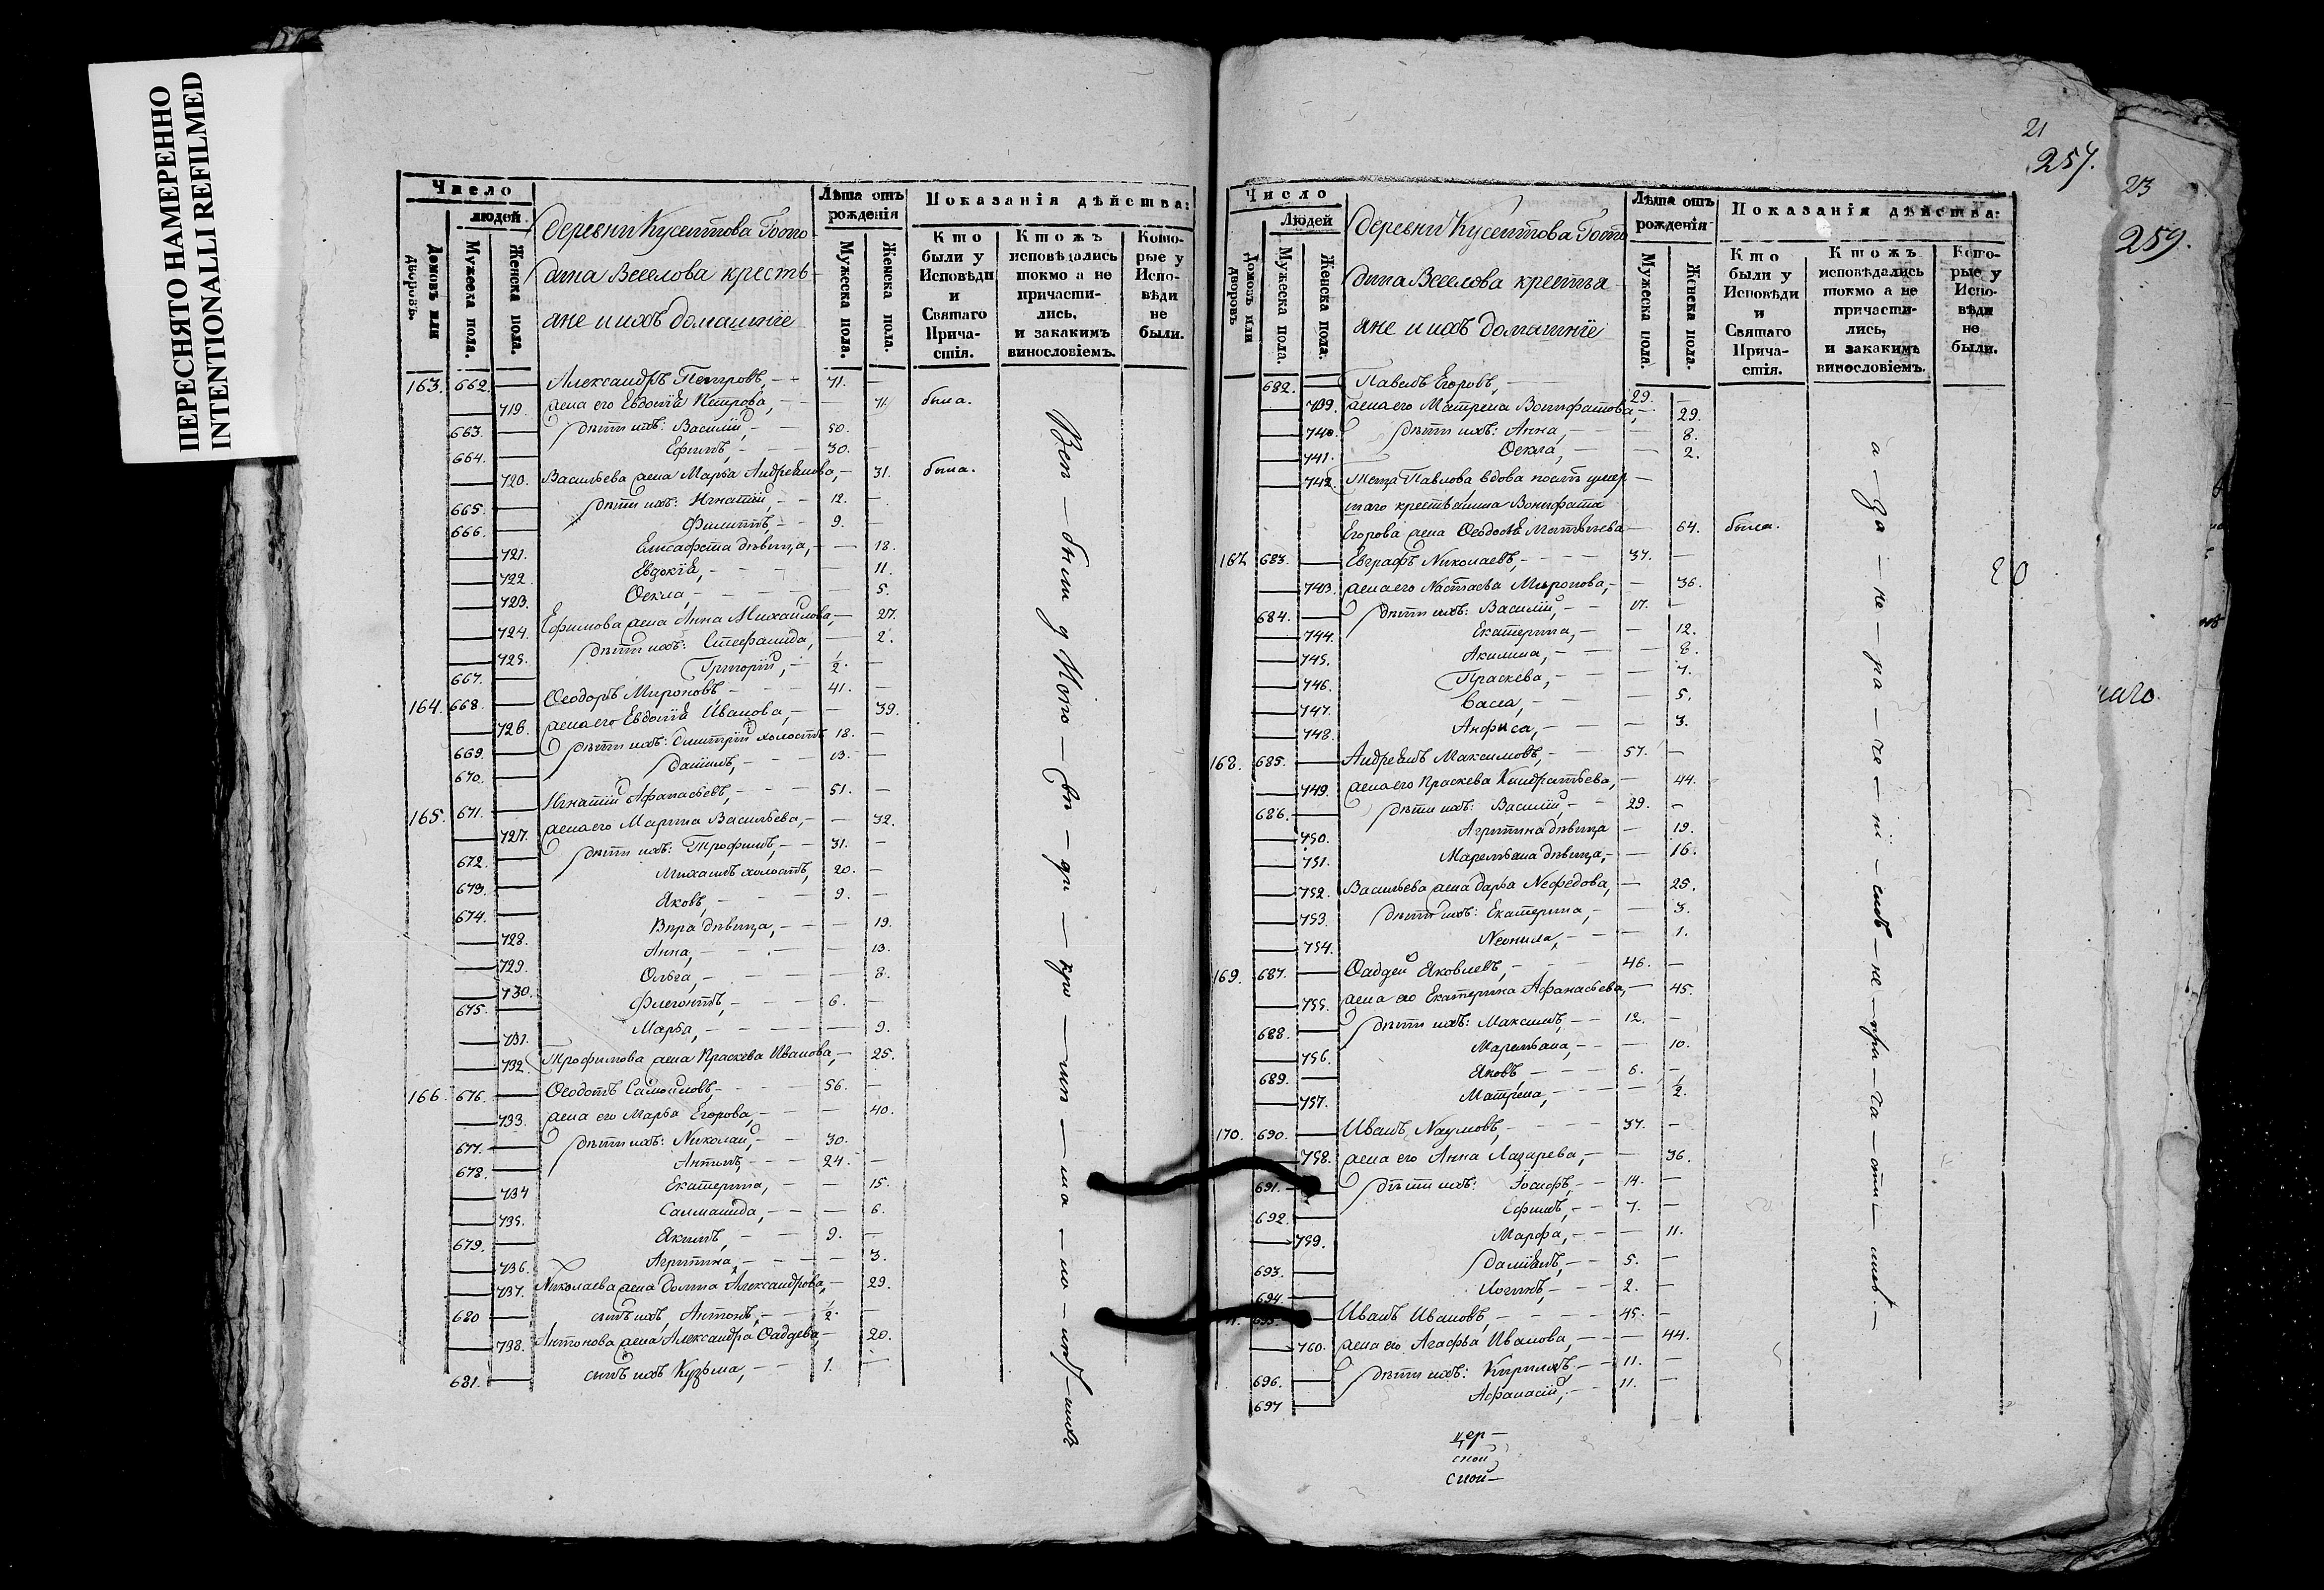 ПЕРЕСНЯТО НАМЕРЕННО
INTENTIONALLI REFILMED
Число
людей
Домовъ или дворовъ.
Мужеска пола.
Женска пола.
деревни Кусеитова Госпо-
дина Веселова кресть-
яне и ихъ домашнїе
Лѣта отъ рожденія
Мужеска пола.
Женска пола.
Показанія дѣйства:
Кто были у Исповѣди и Святаго Прича-стія.
Ктожъ исповѣдались токмо а не причасти-лись, и закакимъ винословіемъ.
Кото-рые у Испо-вѣди не были.
163. 662. — Александръ Петровъ, — 71. —
— 719. жена его Евдокїѧ Петрова, — 71 была.
663. — дѣти ихъ: Василїй, — 50.
664. — Ефимъ, — 30. —
— 720. Васильева жена Марья Андреянова, — 31. была.
665. — дѣти ихъ: Игнатїй, — 12. —
666. — Филиппъ, — 9. —
— 721. Елисафета дѣвица, — 18.
— 722. Евдокїѧ, — 11.
— 723. Ѳекла, — 5.
— 724. Ефимова жена Анна Михайлова, — 27.
— 725. дѣти ихъ: Стефанида, — 2.
667. — Григорїй, — 1/2. —
164. 668. — Ѳеодоръ Мироновъ, — 41. —
— 726. жена его Евдокїѧ Иванова, — 39.
669. — дѣти ихъ: Дмитрїй холостъ 18. —
670. — Данилъ, — 13. —
165. 671. — Игнатїй Афанасьевъ, — 51. —
— 727. жена его Марина Васильева, — 52.
672. — дѣти ихъ: Трофимъ, — 31. —
673. — Михаилъ холостъ, 20. —
674. — Яковъ, — 9. —
— 728. Вѣра дѣвица, — 19.
— 729. Анна, — 13.
— 730. Ольга, — 8.
675. — Флегонтъ, — 6. —
— 731. Марья, — 9.
— 732. Трофимова жена Праскева Иванова, — 25.
166. 676. — Ѳеодотъ Самойловъ, — 56. —
— 733. жена его Марья Егорова, — 40.
677. — дѣти ихъ: Николай, — 30.
678. — Антипъ, — 24. —
— 734 Екатерина, — 15.
— 735. Саломанида, — 6.
679. — Якимъ, — 9. —
— 736. Агрипина, — 3.
— 737. Николаева жена Домна Александрова, — 29.
680 — сынъ ихъ, Антонъ, — 1/2. —
— 738. Антонова жена Александра Ѳаддеева, — 20.
681. — сынъ ихъ Кузьма, — 1. —
21
257.
Число
Людей
Домовъ или дворовъ
Мужеска пола.
Женска пола.
деревни Кусеитова Госпо
дина Веселова крестья
яне и ихъ домашнїе
Лѣта отъ рожденія
Мужеска пола.
Женска пола.
Показанія дѣйства:
Кто были у Исповѣди и Святаго Прича-стія.
Ктожъ исповѣдались токмо а не причасти-лись, и закакимъ винословіемъ.
Кото-рые у Испо-вѣди не были.
682. — Павелъ Егоровъ, — 29. —
— 739. жена его Матрена Вонифатова, — 29.
— 740. дѣти ихъ: Анна, — 8.
— 741. Ѳекла, — 2.
— 742. Теща Павлова вдова послѣ умер —
шаго крестьянина Вонифата
Егорова жена Ѳеодосья Матвеева — 64. была.
167. 683. — Евграфъ Николаевъ, — 37. —
— 743. жена его Настасья Миронова, — 36.
684. — дѣти ихъ: Василїй, — 17. —
— 744. Екатерина, — 12.
— 745. Акилина, — 8.
— 746. Праскева, — 7.
— 747. Васса, — 5.
— 748. Анфиса, — 3.
168. 685. — Андреянъ Максимовъ, — 57. —
— 749. жена его Праскева Кандратьева, — 44.
686. — дѣти ихъ: Василїй, — 29. —
— 750. Агрипина дѣвица — 19.
— 751. Маремьяна дѣвица, — 16.
— 752. Васильева жена Дарья Нефедова, — 25.
— 753. дѣти ихъ: Екатерина, — 3.
— 754. Неонила, — 1.
169. 687. — Ѳаддей Яковлевъ, — 46. —
— 755. жена его Екатерина Афанасьева, — 45.
688. — дѣти ихъ: Максимъ, — 12. —
— 756. Маремьяна, — 10.
689. — Яковъ — 6. —
— 757. Матрена, — 1/2.
170. 690. — Иванъ Наумовъ, — 37. —
— 758. жена его Анна Лазарева, — 36.
691. — дѣти ихъ: Іосифъ, — 14. —
692. — Ефимъ, — 7. —
— 759. Марфа, — 11.
693. — Данїилъ, — 5. —
694. — Логинъ, — 2. —
695. — Иванъ Ивановъ, — 45. —
— 760. жена его Агафья Иванова, — 44.
696. — дѣти ихъ: Кирилъ, — 11. —
697 — Афанасїй, — 11. —
20
цер —
сной
23
259.